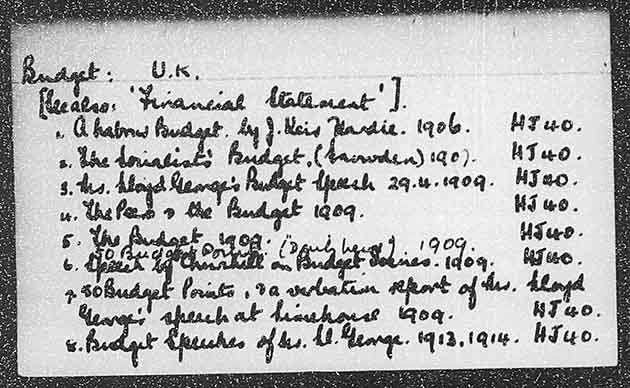 Budget: U.K.
[See also: 'Financial Statement'].
1. A Labour Budget. by J. Keir Hardie. 1906. HJ40.
2. The Socialist's Budget. (Snowden) 1907. HJ40.
3. Mr. Lloyd George's Budget Speech 29.4.1909. HJ40.
4. The Peers & the Budget 1909. HJ40.
5. The Budget 1909. HJ40.
50 Budget Points (Daily News). 1909.
6. Speech by Churchill on Budget 1909. HJ40.
7. 50 Budget Points, & a verbatim report of Mr. Lloyd
George's speech at Limehouse 1909. HJ40.
8. Budget Speeches of Mr. Ll. George. 1913, 1914. HJ40.